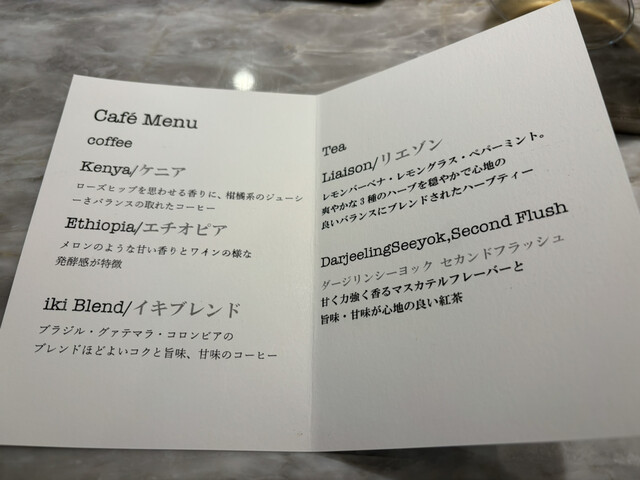 Café Menu
coffee
Kenya/ケニア
ローズヒップを思わせる香りに、柑橘系のジューシ
ーさバランスの取れたコーヒー
Ethiopia/エチオピア
メロンのような甘い香りとワインの様な
発酵感が特徴
iki Blend/イキブレンド
ブラジル・グァテマラ・コロンビアの
ブレンドほどよいコクと旨味、甘味のコーヒー
Tea
Liaison/リエゾン
レモンバーベナ・レモングラス・ペパーミント。
爽やかな3種のハーブを穏やかで心地の
良いバランスにブレンドされたハーブティー
DarjeelingSeeyok,Second Flush
ダージリンシーヨック セカンドフラッシュ
甘く力強く香るマスカテルフレーバーと
旨味・甘味が心地の良い紅茶